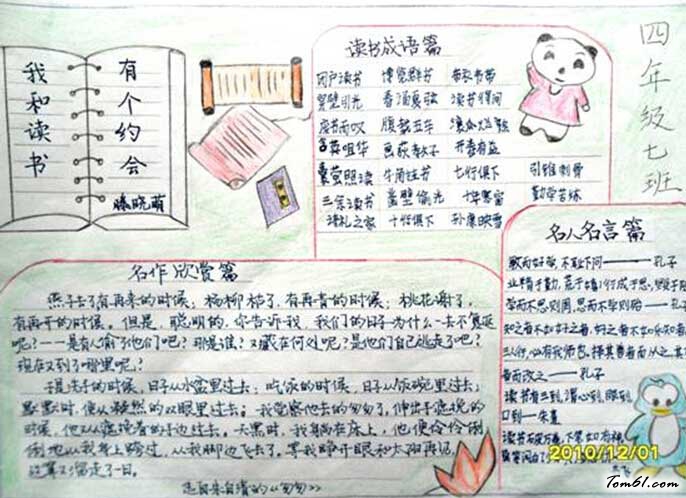 我和读书
有个约会
滕晓萌
四年级七班
读书成语篇
闭户读书 博览群书 带经
凿壁引光 春诵夏弦 读书得间
废书而叹 腹载五车
含英咀华 画荻教子 开卷有益
囊萤照读 牛角挂书 七行俱下 引锥刺骨
三余读书 凿壁偷光 十年寒窗 勤学苦练
诗礼之家 十行俱下 孙康映雪
名作欣赏篇
燕子去了有再来的时候；杨柳枯了，有再青的时候；桃花谢了，
有再开的时候。但是，聪明的，你告诉我，我们的日子为什么一去不复返
呢？——是有人偷了他们吧？那是谁？又藏在何处呢？是他们自己逃走了吧？
现在又到了哪里呢？
于是洗手的时候，日子从水盆里过去；吃饭的时候，日子从饭碗里过去；
默默时，便从凝然的双眼里过去。我觉察他去的匆匆了，伸出手遮挽的
时候，他又从遮挽着的手边过去。天黑时，我躺在床上，他便伶伶俐
俐地从我身上跨过，从我脚边飞去了。等我睁开眼和太阳再见，
这算又溜走了一日。
选自朱自清的《匆匆》
名人名言篇
敏而好学，不耻下问——孔子
业精于勤，荒于嬉；行成于思，毁于随
学而不思则罔，思而不学则殆——孔子
知之者不如好之者，好之者不如乐知者
三人行，必有我师也，择其善者而从之，其
善而改之——孔子
读书有三到，谓心到，眼到，
口到——朱熹
读书破万卷，下笔如有神。
2010/12/01
Tom61.com